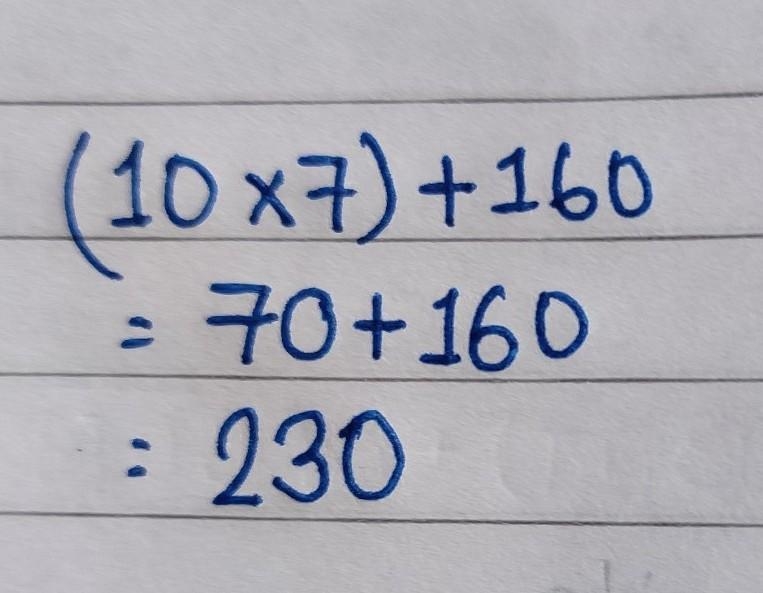 (10×7)+160
= 70+160
= 230